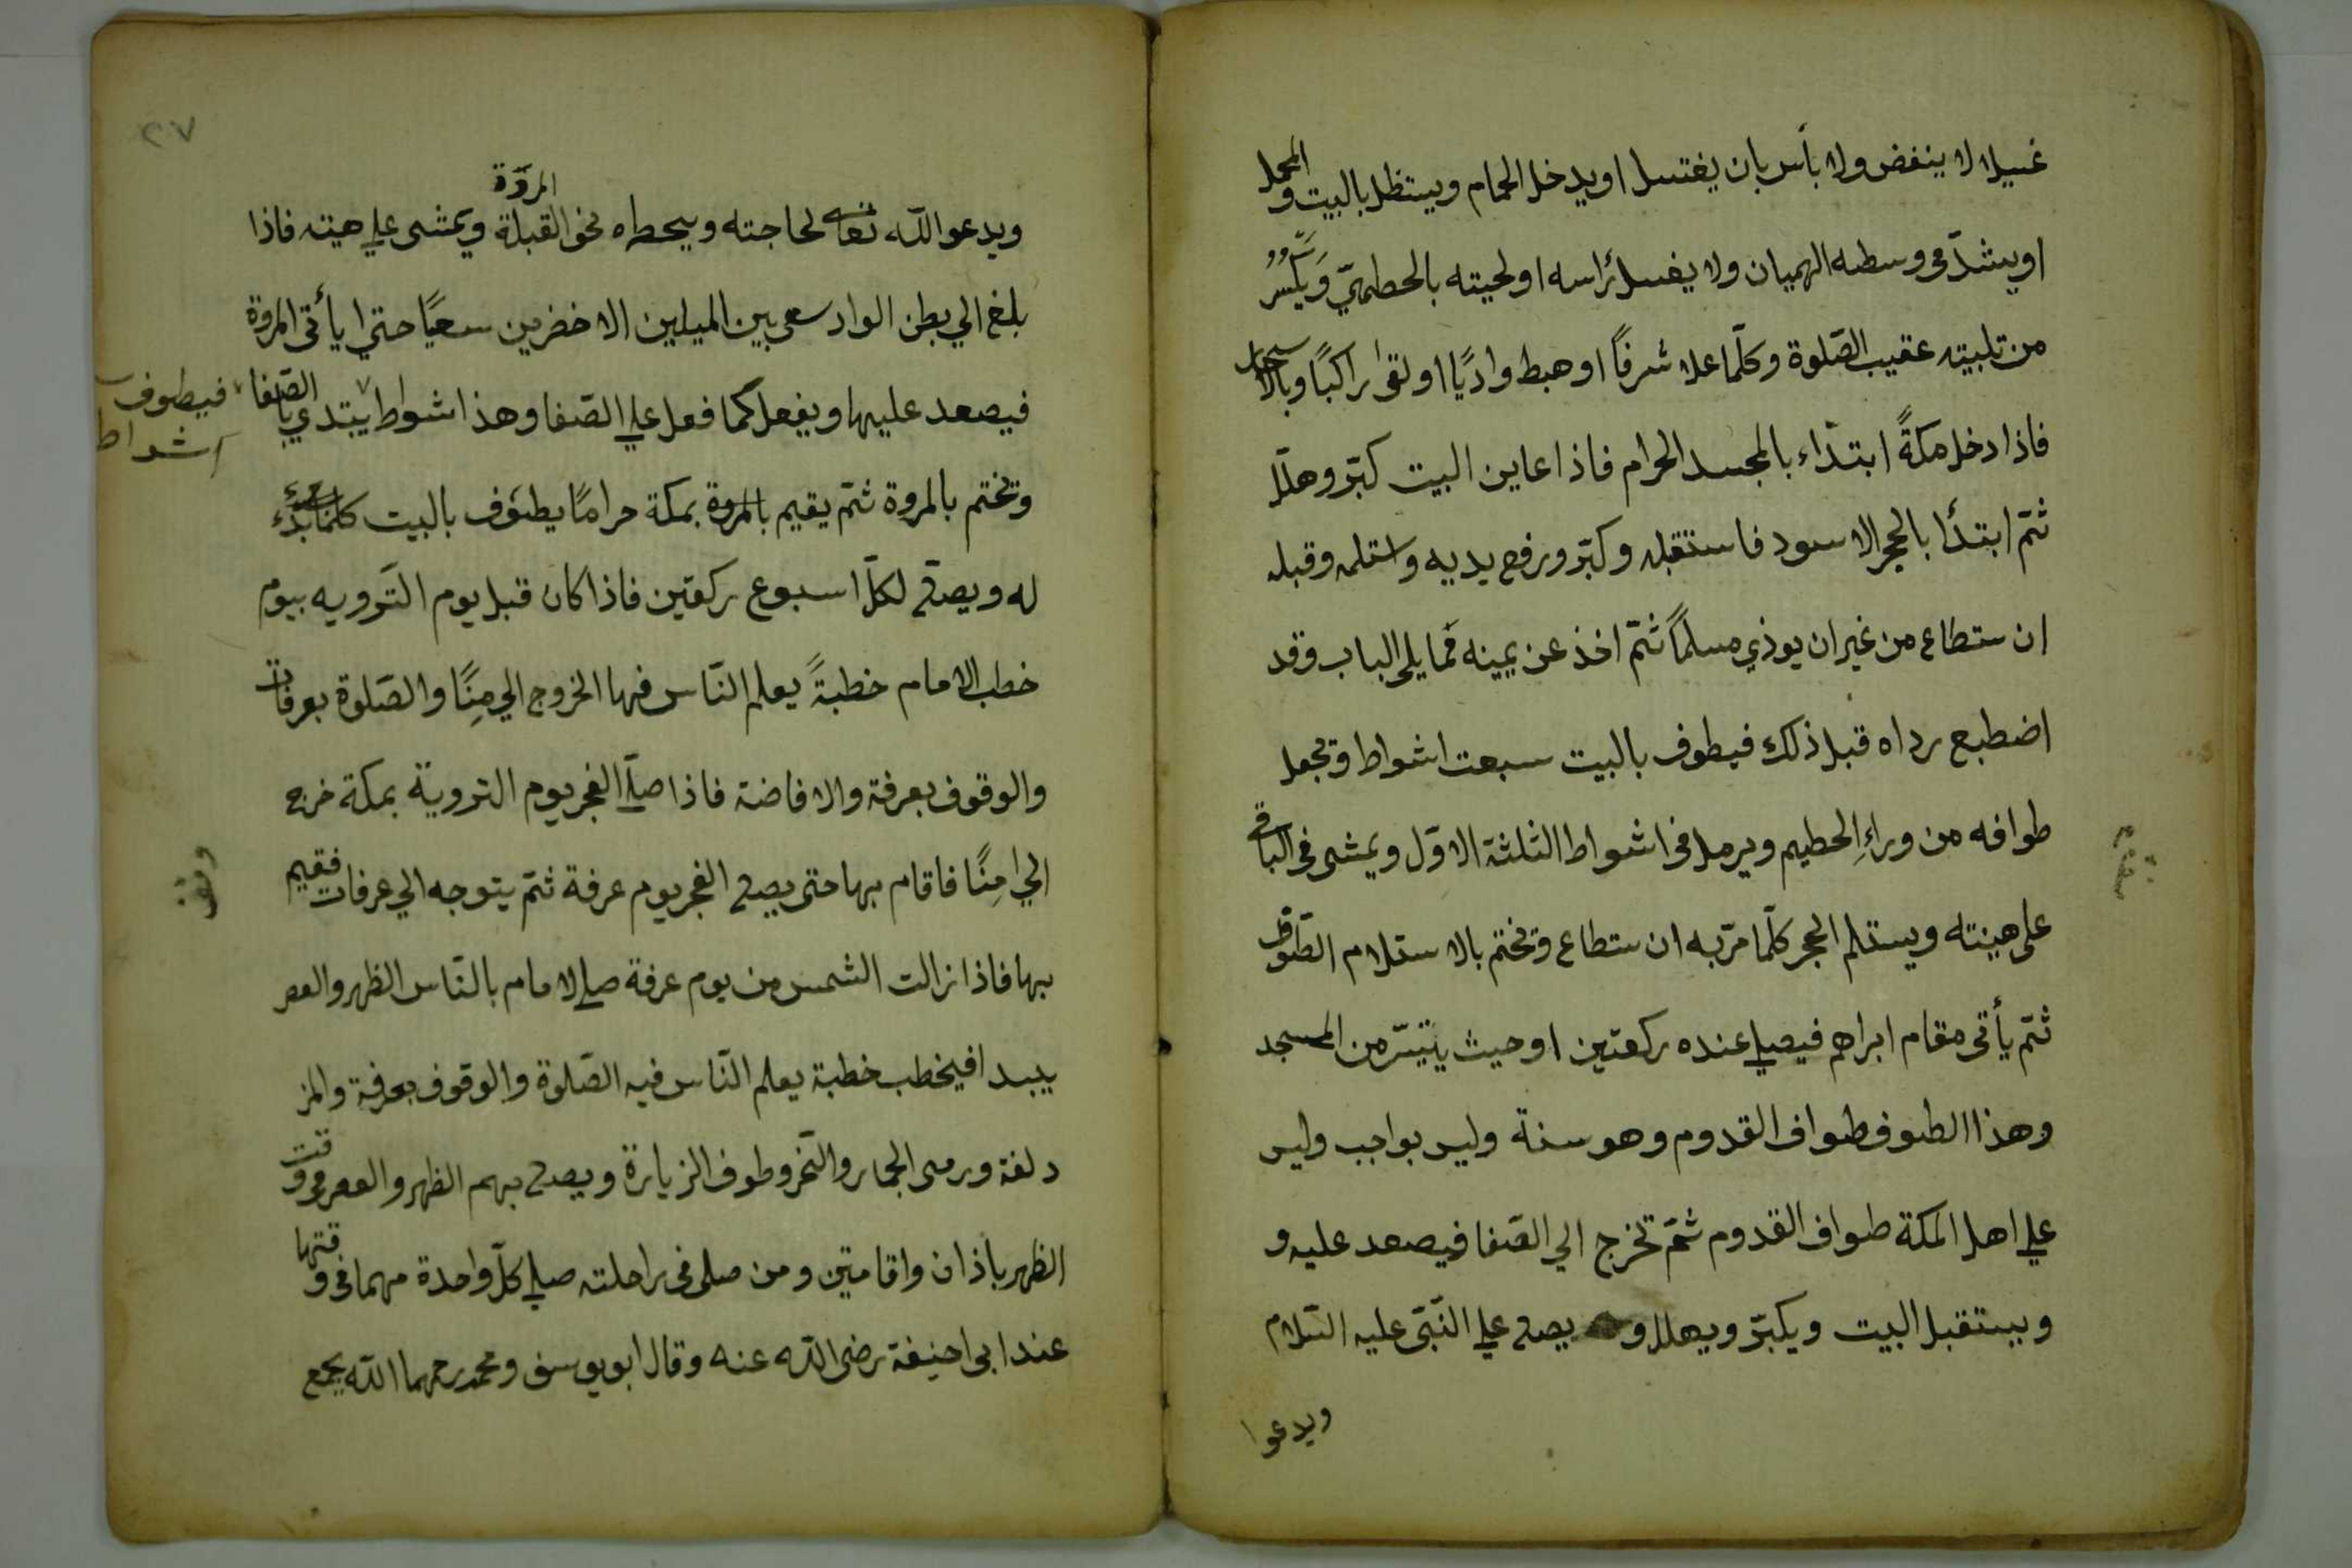 غسيلا لا ينفض ولا بأس بان يغتسل او يدخل الحمام ويستظل بالبيت والمحل
او يشدّ فى وسطه الهميان ولا يغسل رأسه او لحيته بالحطميّ وَيكْثِرُ
من تلبيته عقيب الصّلوة وكلّما علا شرفاً او هبط واديًا او لقى راكبًا وبالاسحار
فاذا دخل مكةً ابتداء بالمجسد الحرام فاذا عاين البيت كبّر وهلّل
ثمّ ابتدأ بالحجر الاسود فاستقبله وكبّر ورفع يديه واستلمه وقبله
ان ستطاع من غير ان يوذي مسلماً ثمّ اخذ عن يمينه فما يلى الباب وقد
اضطبع رداه قبل ذلك فيطوف بالبيت سبعت اشواط ويجعل
طوافه من وراءِ الحطيم ويرمل فى اشواط الثلثة الاوّل ويمشى فى الباقى
على هينته ويستلم الحجر كلّما مرّ به ان ستطاع ويختم بالاستلام الطّوف
ثمّ يأتى مقام ابراهم فيصلي عنده ركعتين او حيث يتيسّر من المسجد
وهذا الطوف طواف القدوم وهو سنة وليس بواجب وليس
علي اهل المكة طواف القدوم ثمّ تخرج الي الصّفا فيصعد عليه و
ويستقبل البيت ويكبّر ويهلل و يصلى علي النّبىّ عليه السّلام
ويدعوا
٢٧
ويدعو اللّه تعالى لحاجته ويحطاه نحو القبلة المروة ويمشى علي هينه فاذا
بلغ الي بطن الواد سعى بين الميلين الاخضرين سعيًا حتي يأتى المروة
فيصعد عليها ويفعل كما فعل علي الصّفا وهذا اشواط يبتدي بالصّفا
فيطوف
اشواط
وتختم بالمروة ثمّ يقيم بالمروة بمكة حرامًا يطوف بالبيت كلما بدء
له ويصلى لكلّ اسبوع ركعتين فاذا كان قبل يوم التّرويه بيوم
خطب الامام خطبةً يعلم النّاس فيها الخروج الي مِنًا والصّلوة بعرفات
والوقوف بعرفة والافاضة فاذا صلّا الفجر يوم التروية بمكة خرج
الي مِنًا فاقام بها حتى يصلى الفجر يوم عرفة ثمّ يتوجه الي عرفات فقيم
بها فاذا زالت الشمس من يوم عرفة صلي الامام بالنّاس الظهر والعصر
يبدا فيخطب خطبة يعلم النّاس فيه الصّلوة والوقوف بعرفة والمز
دلفة ورمى الجمار والنّحر وطوف الزيارة ويصلى بهم الظهر والعصر فى وقت
الظهر باذان واقامتين ومن صلى فى راحلته صلي كلّ واحدة مهما فى وقتها
عند ابى احنيفة رضى اللّه عنه وقال ابو يوسف ومحمد رحمهما اللّه يجمع